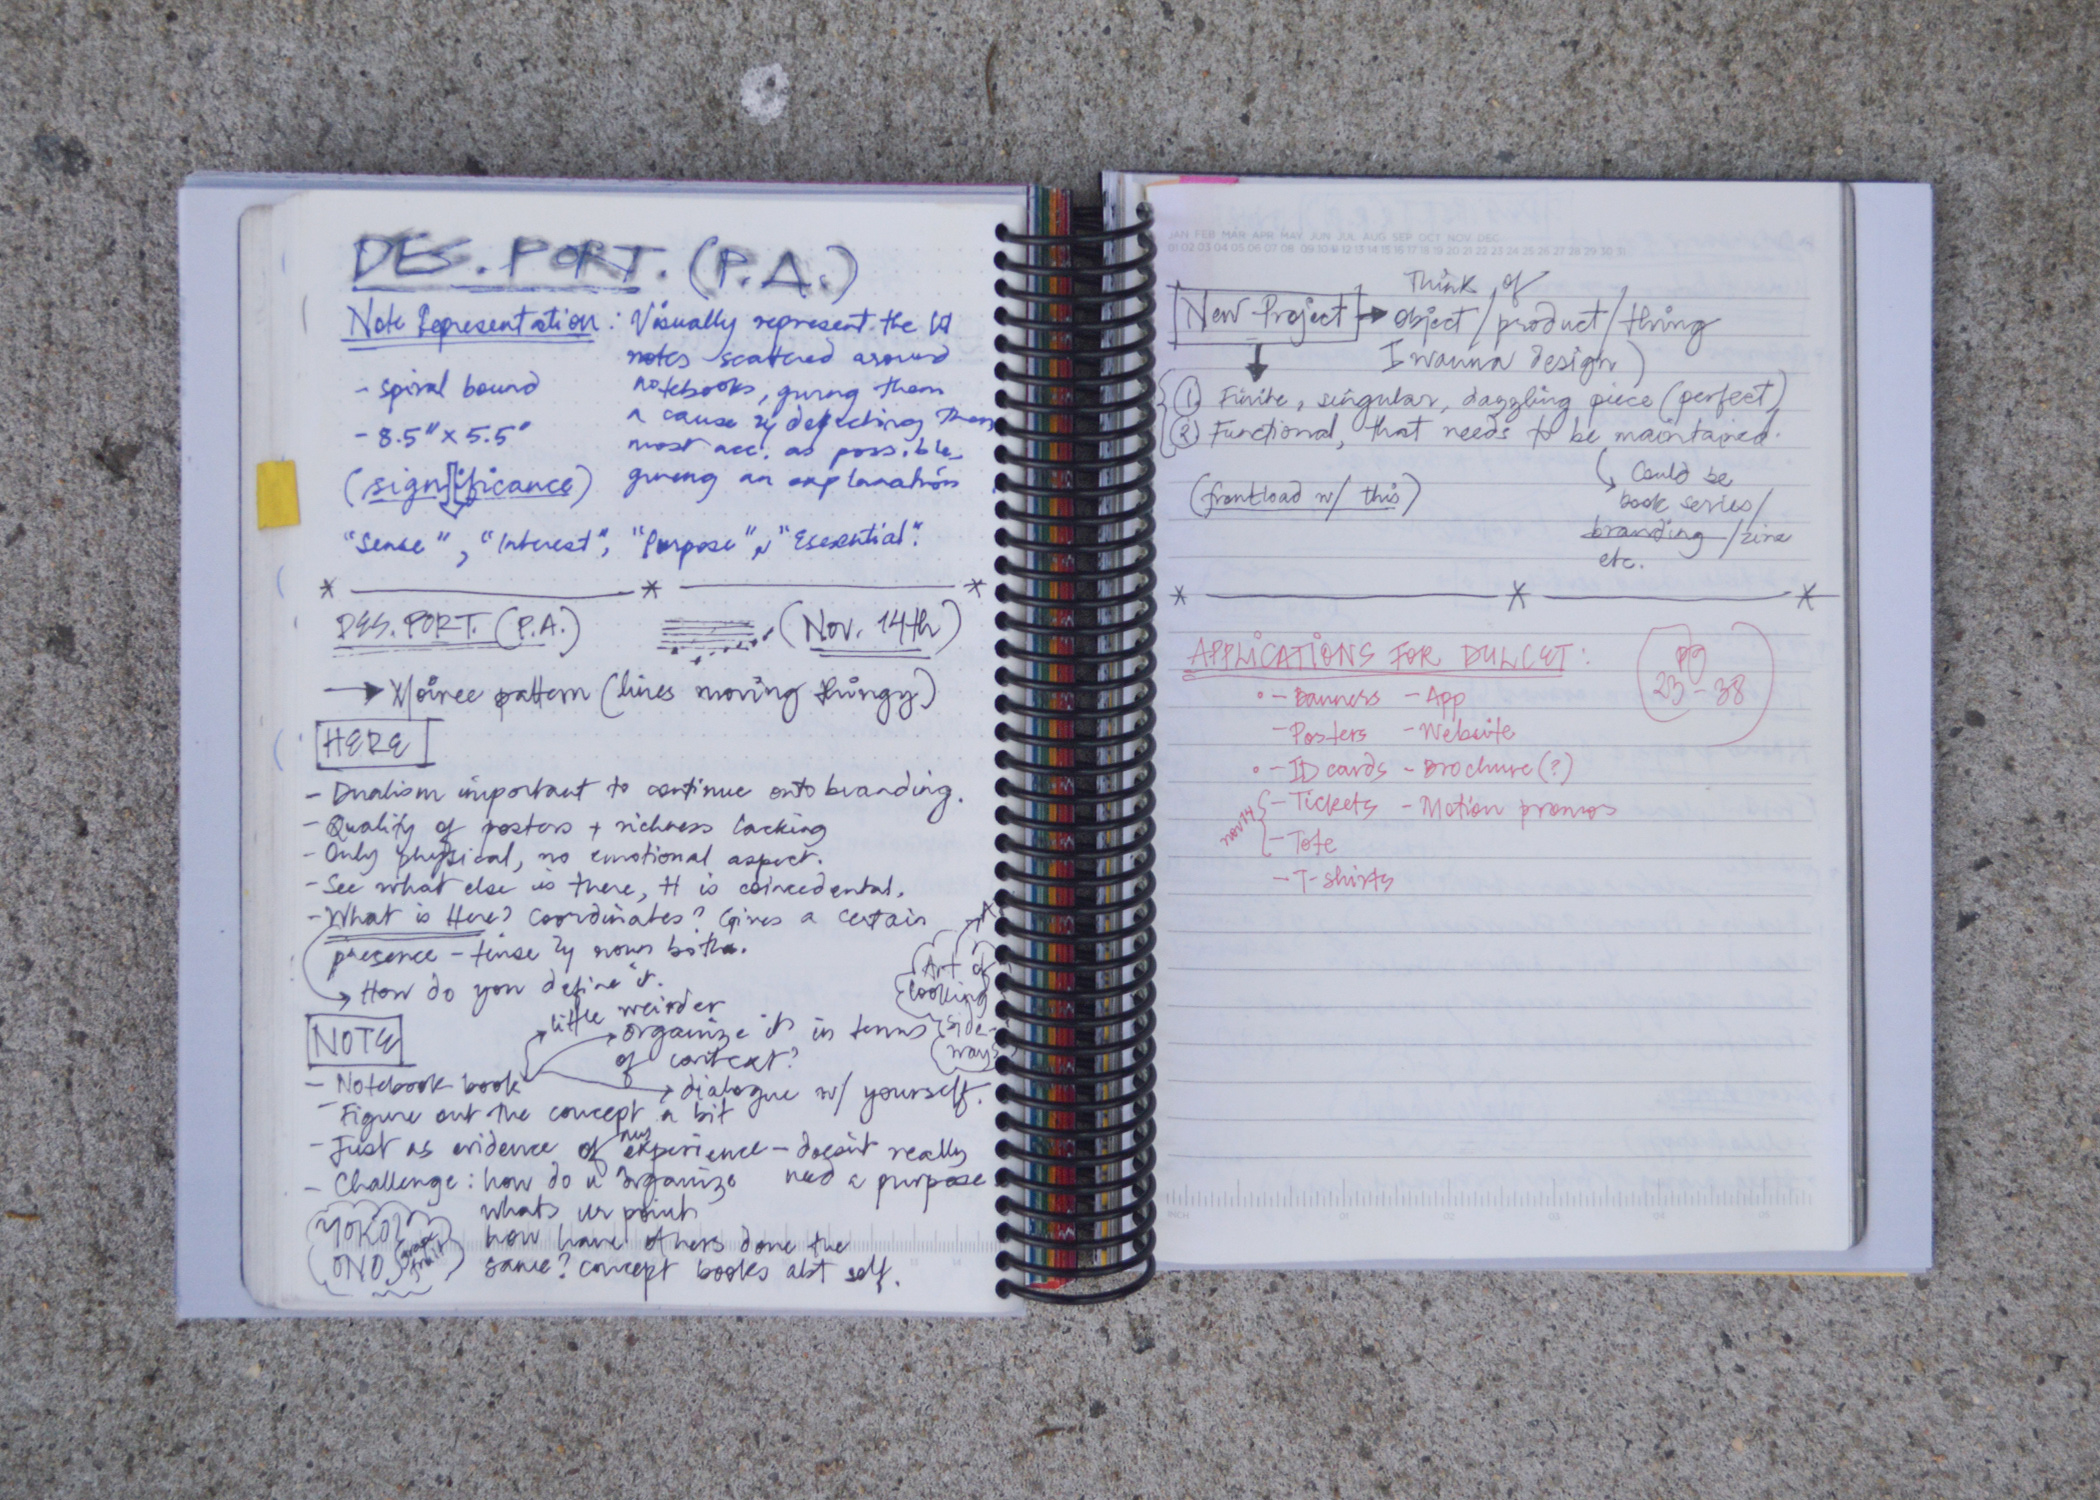 DES. PORT. (P.A.)
Note Representation: Visually represent the
notes scattered around
- spiral bound
notebooks, giving them
a cause by depicting them
- 8.5" x 5.5"
most acc. as possible,
(significance)
giving an explanation
"Sense", "Interest", "Purpose", "Essential".
DES. PORT. (P.A.) (Nov. 14th)
→ Moiree pattern (lines moving thingy)
HERE
- Dualism important to continue onto branding.
- Quality of posters + richness lacking
- Only physical, no emotional aspect.
- See what else is there, H is coincedental.
- What is Here? Coordinates? Gives a certain
presence - tense by nouns both.
→ How do you define it.
Art of
looking
side-
ways
NOTE
little weirder
organize it in terms
of context?
- Notebook book
dialogue w/ yourself.
- Figure out the concept a bit
- Just as evidence of experience - doesn't really
need a purpose
- Challenge: how do u organize
whats ur point
how have others done the
same? concept books abt self.
YOKO
ONO
grape
fruit
JAN FEB MAR APR MAY JUN JUL AUG SEP OCT NOV DEC
01 02 03 04 05 06 07 08 09 10 11 12 13 14 15 16 17 18 19 20 21 22 23 24 25 26 27 28 29 30 31
New Project → Think of
object/product/thing
I wanna design)
1. Finite, singular, dazzling piece (perfect)
2. Functional, that needs to be maintained.
Could be
book series/
branding/zine
etc.
(frontload w/ this)
APPLICATIONS FOR DULCET:
pg
23-38
- Banners - App
- Posters - Website
- ID cards - Brochure(?)
- Tickets - Motion promos
nov 14
- Tote
- T-shirts
INCH